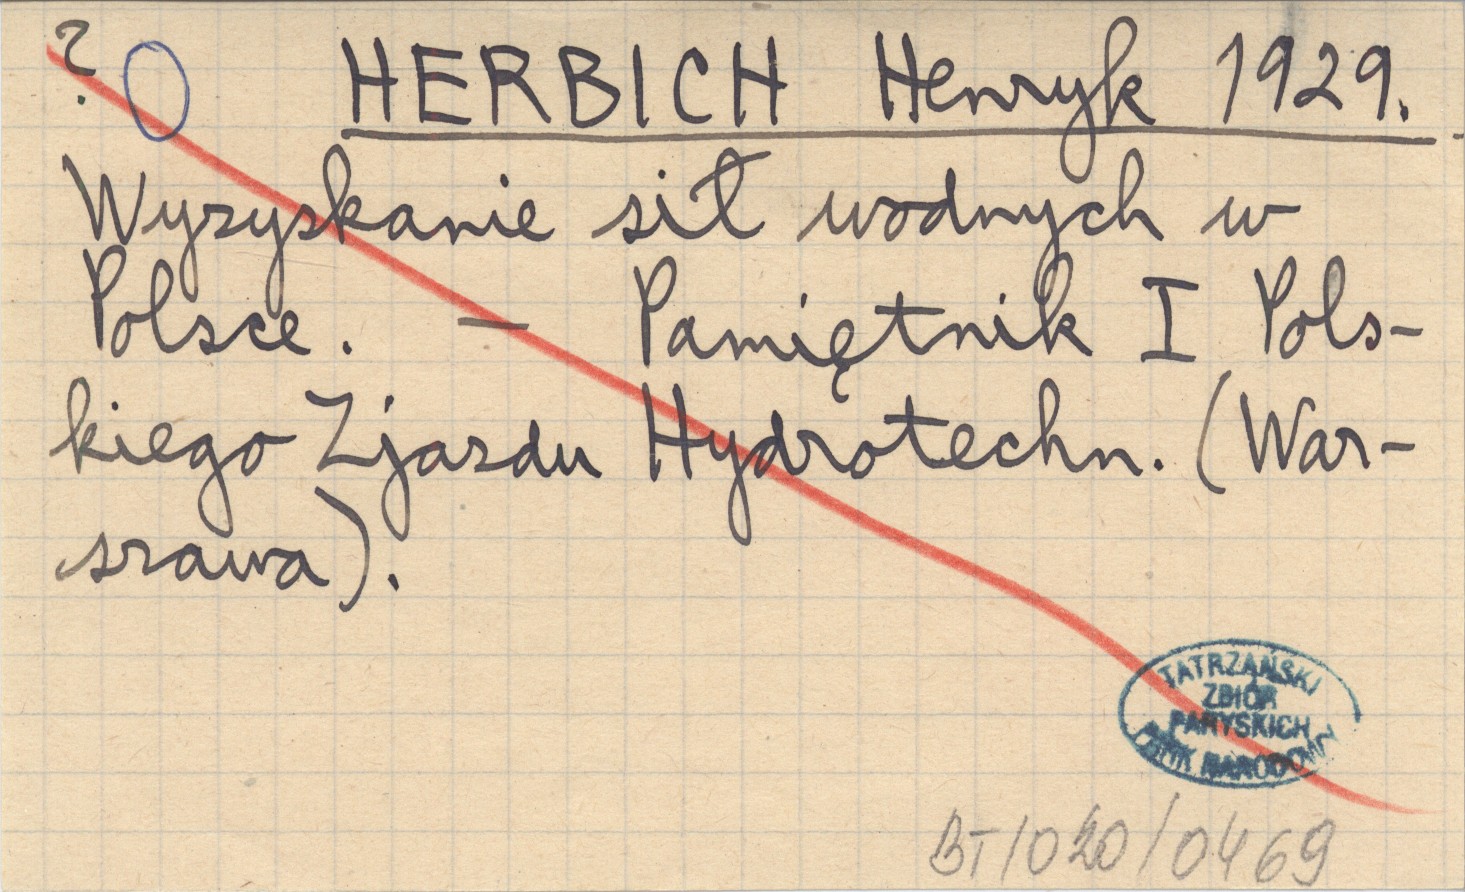 ? HERBICH Henryk 1929.
Wyzyskanie sił wodnych w
Polsce. — Pamiętnik I Pols-
kiego Zjazdu Hydrotechn. (War-
szawa).
TATRZAŃSKI
ZBIÓR
PARYSKICH
PARK NARODOWY
BT/020/0469